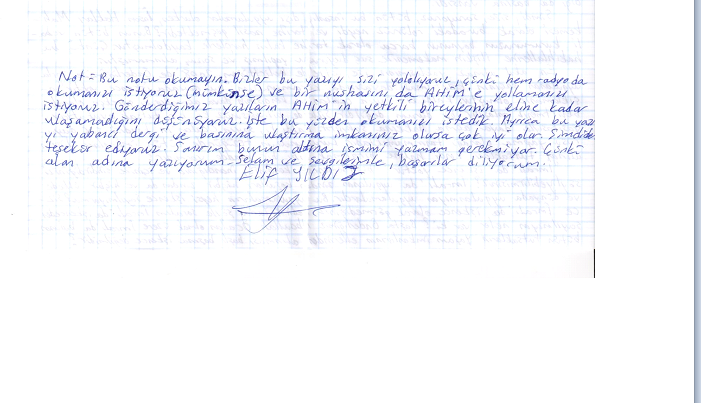 Not = Bu notu okumayın. Bizler bu yazıyı sizi yolluyoruz, çünki hem radyoda
okumanızı istiyoruz (mümkünse) ve bir nushasını da AHİM'e yollamanızı
istiyoruz. Gönderdiğimiz yazıların AHİM'in yetkili bireylerinin eline kadar
ulaşamadığını düşünüyoruz. İşte bu yüzden okumanızı istedik. Ayrıca bu yazı
yı yabancı dergi ve basınına ulaştırma imkanınız olursa çok iyi olur. Şimdiden
teşekkür ediyoruz. Sanırım bunun altına ismimi yazmam gerekmiyor. Çünki
adına yazıyorum. Selam ve sevgilerimle, başarılar diliyorum.
Elif YILDIZ